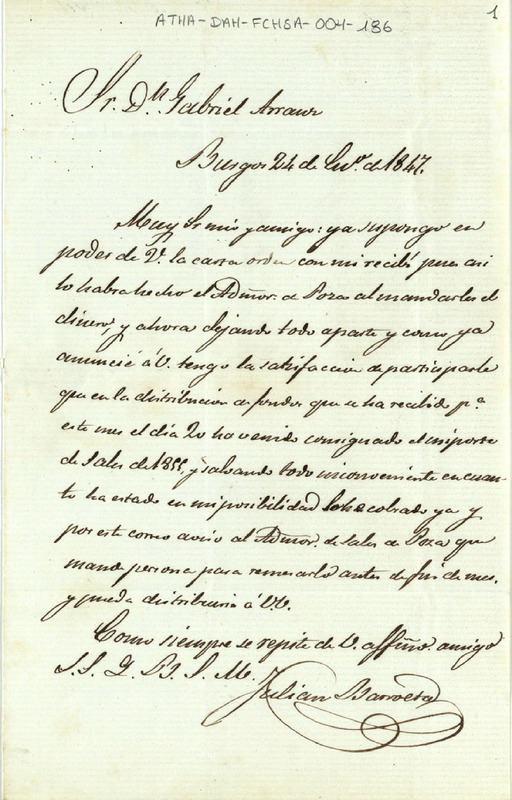 ATHA-DAH-FCHSA-004-136
1
Sr. Dn. Gabriel Arraur
Burgos 24 de En.o de 1847.
Muy Sr mio y amigo: ya supongo en
poder de V. la carta orden con mi recibí pues asi
lo habra hecho el Admor. de Poza al mandarles el
dinero, y ahora dejando todo aparte y como ya
anuncié á V. tengo la satisfaccion de participarle
que en la distribucion de fondos que se ha recibido p.a
este mes el dia 20 ha venido consignado el importe
de Sales de , y salvando todo inconveniente en cuan-
to ha estado en mi posibilidad lo he cobrado ya y
por este correo aviso al Admor. de Sales de Poza que
mande persona para remesarlo antes de fin de mes.
y pueda distribuirlo á VV.
Como siempre se repite de V. affmo. amigo
S. S. Q. B. S. M.
Julian Barroeta